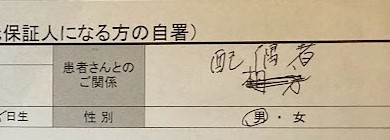 保証人になる方の自署)
患者さんとの
ご関係
配偶者
日生
性別
男・女